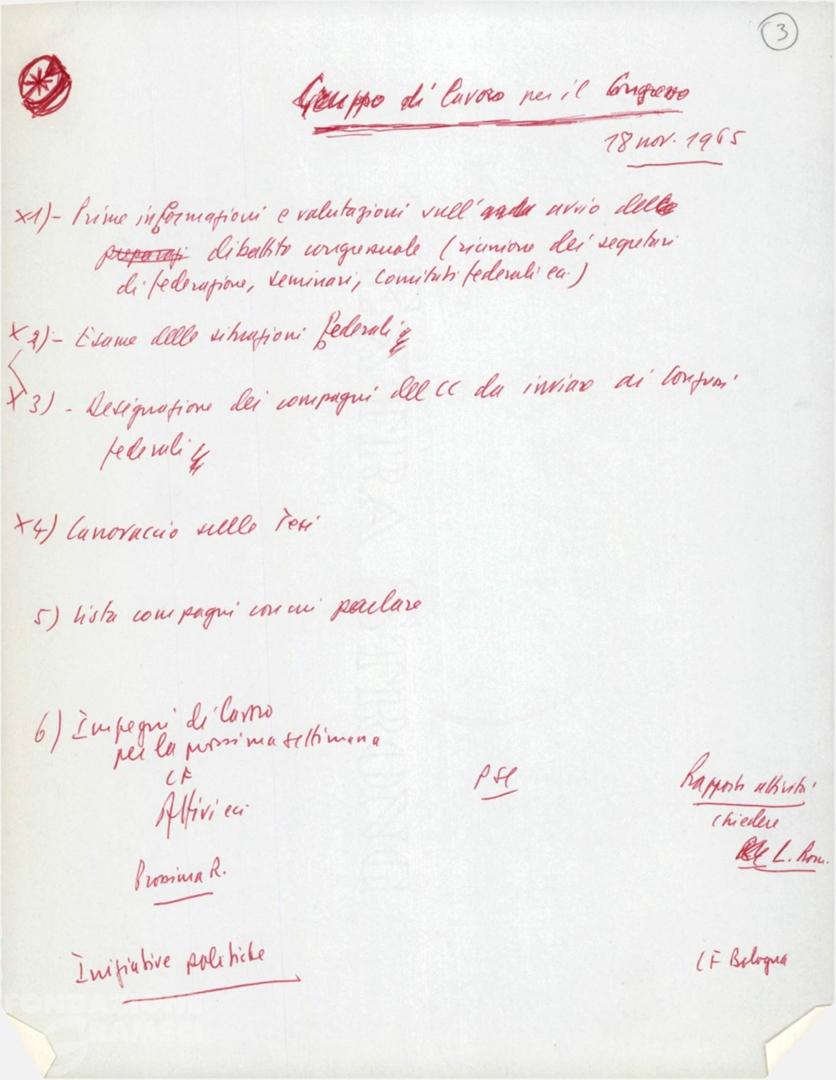 3
Gruppo di lavoro per il Congresso
18 nov. 1965
x1)- Prime informazioni e valutazioni sull' avvio del
preparaz dibattito congressuale (riunione dei segretari
di federazione, seminari, Comitati federali ecc.)
x2)- Esame delle situazioni federali
x3)- Designazione dei compagni del CC da inviare ai Congressi
federali
x4) Canovaccio sulle Tesi
5) Lista compagni con cui parlare
6) Impegni di lavoro
per la prossima settimana
CF
Attivi ecc
Prossima R.
Iniziative politiche
PSI
Rapporti attività
chiedere
L. Rom.
CF Bologna
FONDAZIONE
GRAMSCI